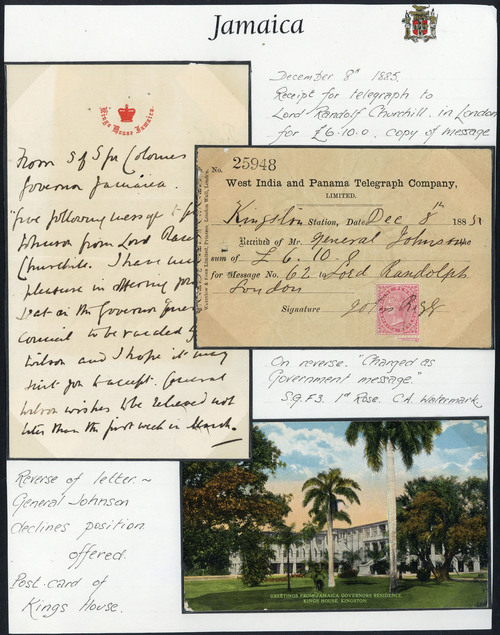 Jamaica
December 8th 1885.
Receipt for telegraph to
Lord Randolf Churchill. in London
for £6.10.0. copy of message
Kings House Jamaica.
From S of S for Colonies
Governor Jamaica.
"Give following message to
Johnson from Lord
Churchill. I have
pleasure in offering you
seat on the Governor
Council to be vacated by
Wilson and I hope it may
suit you to accept. General
Wilson wishes to be released not
later than the first week in March.
No. 25948
West India and Panama Telegraph Company,
LIMITED.
Kingston Station, Date Dec 8th 1885
Received of Mr. General Johnson the
sum of £6.10.0
for Message No. 62 to Lord Randolph
London
Signature
Waterlow & Sons Limited, Printers, London Wall, London.
On reverse. "Charged as
Government message."
S.G.F3. 1d Rose. C.A. Watermark.
Reverse of letter ~
General Johnson
declines position
offered.
Post card of
Kings House.
GREETINGS FROM JAMAICA, GOVERNORS RESIDENCE,
KINGS HOUSE, KINGSTON.